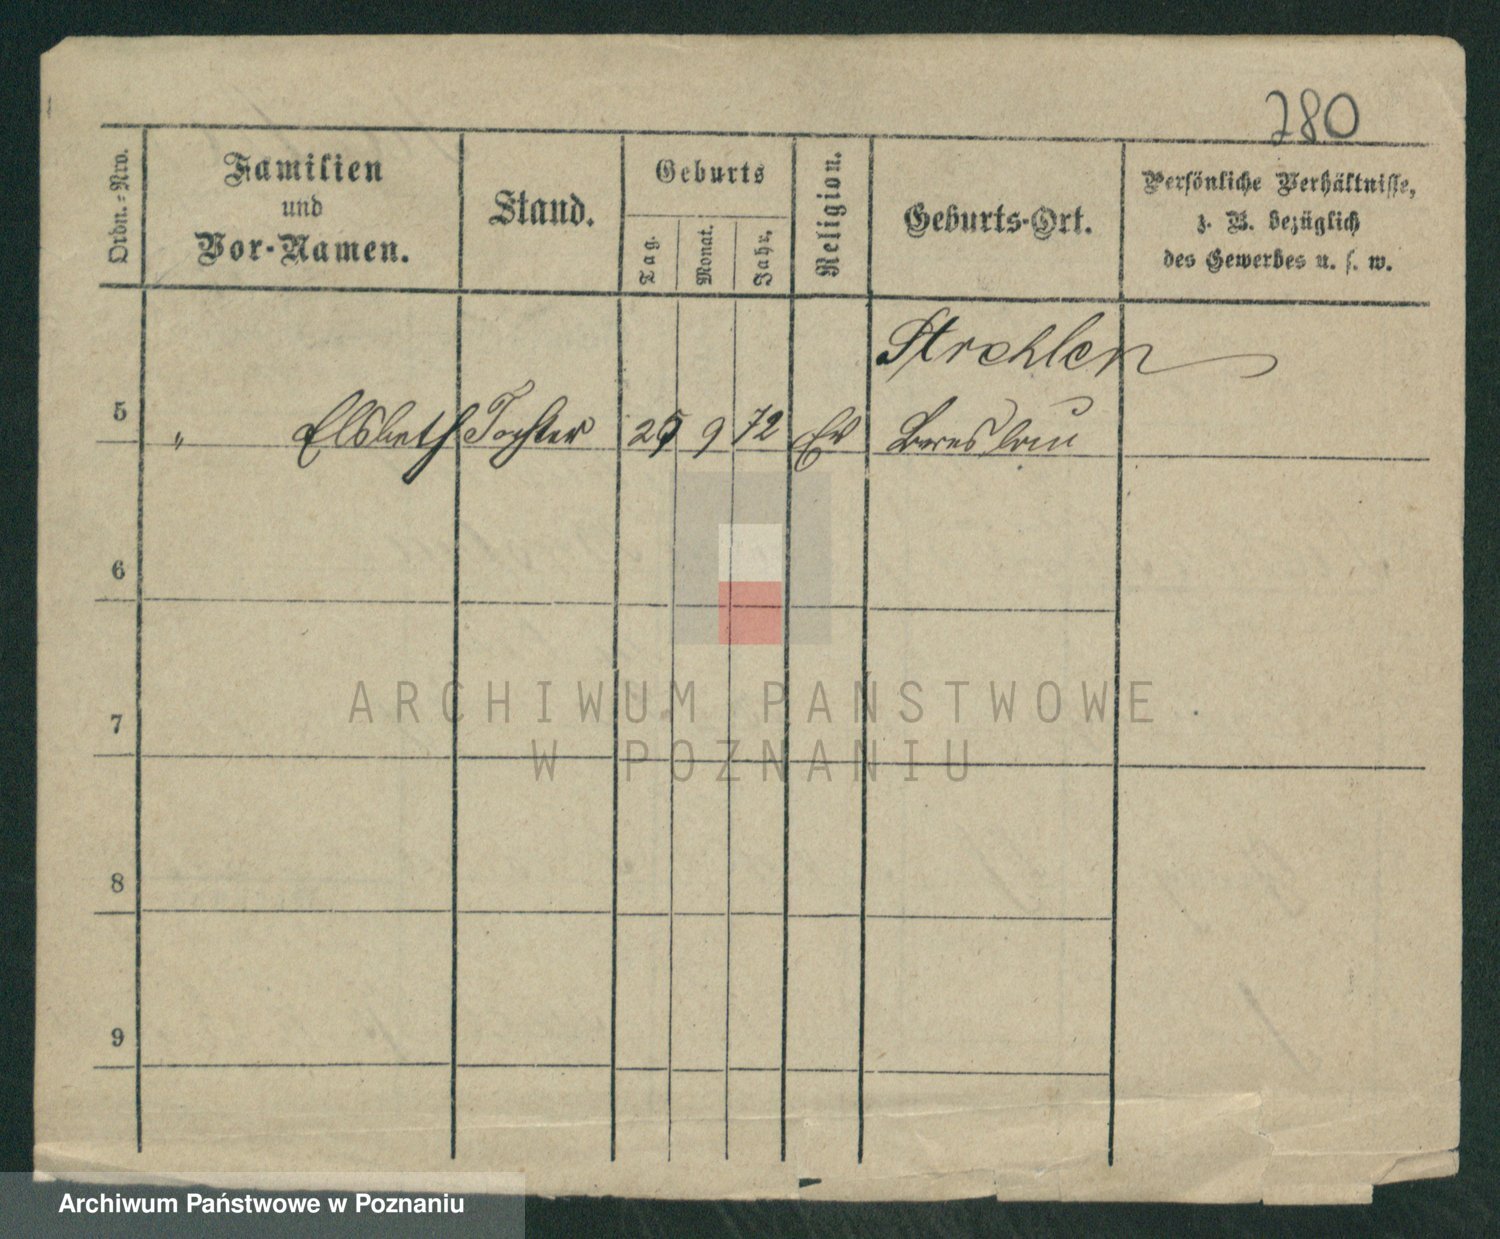 780
Ordn.-Nro.
Familien
und
Vor-Namen.
Stand.
Geburts
Tag.
Monat.
Jahr.
Religion.
Geburts-Ort.
Persönliche Verhältnisse,
z. B. bezüglich
des Gewerbes u. s. w.
Strehlen
5 " Elsbeth Tochter 25 9 72 Ev Breslau
6
7
8
9
ARCHIWUM PAŃSTWOWE
W POZNANIU
Archiwum Państwowe w Poznaniu